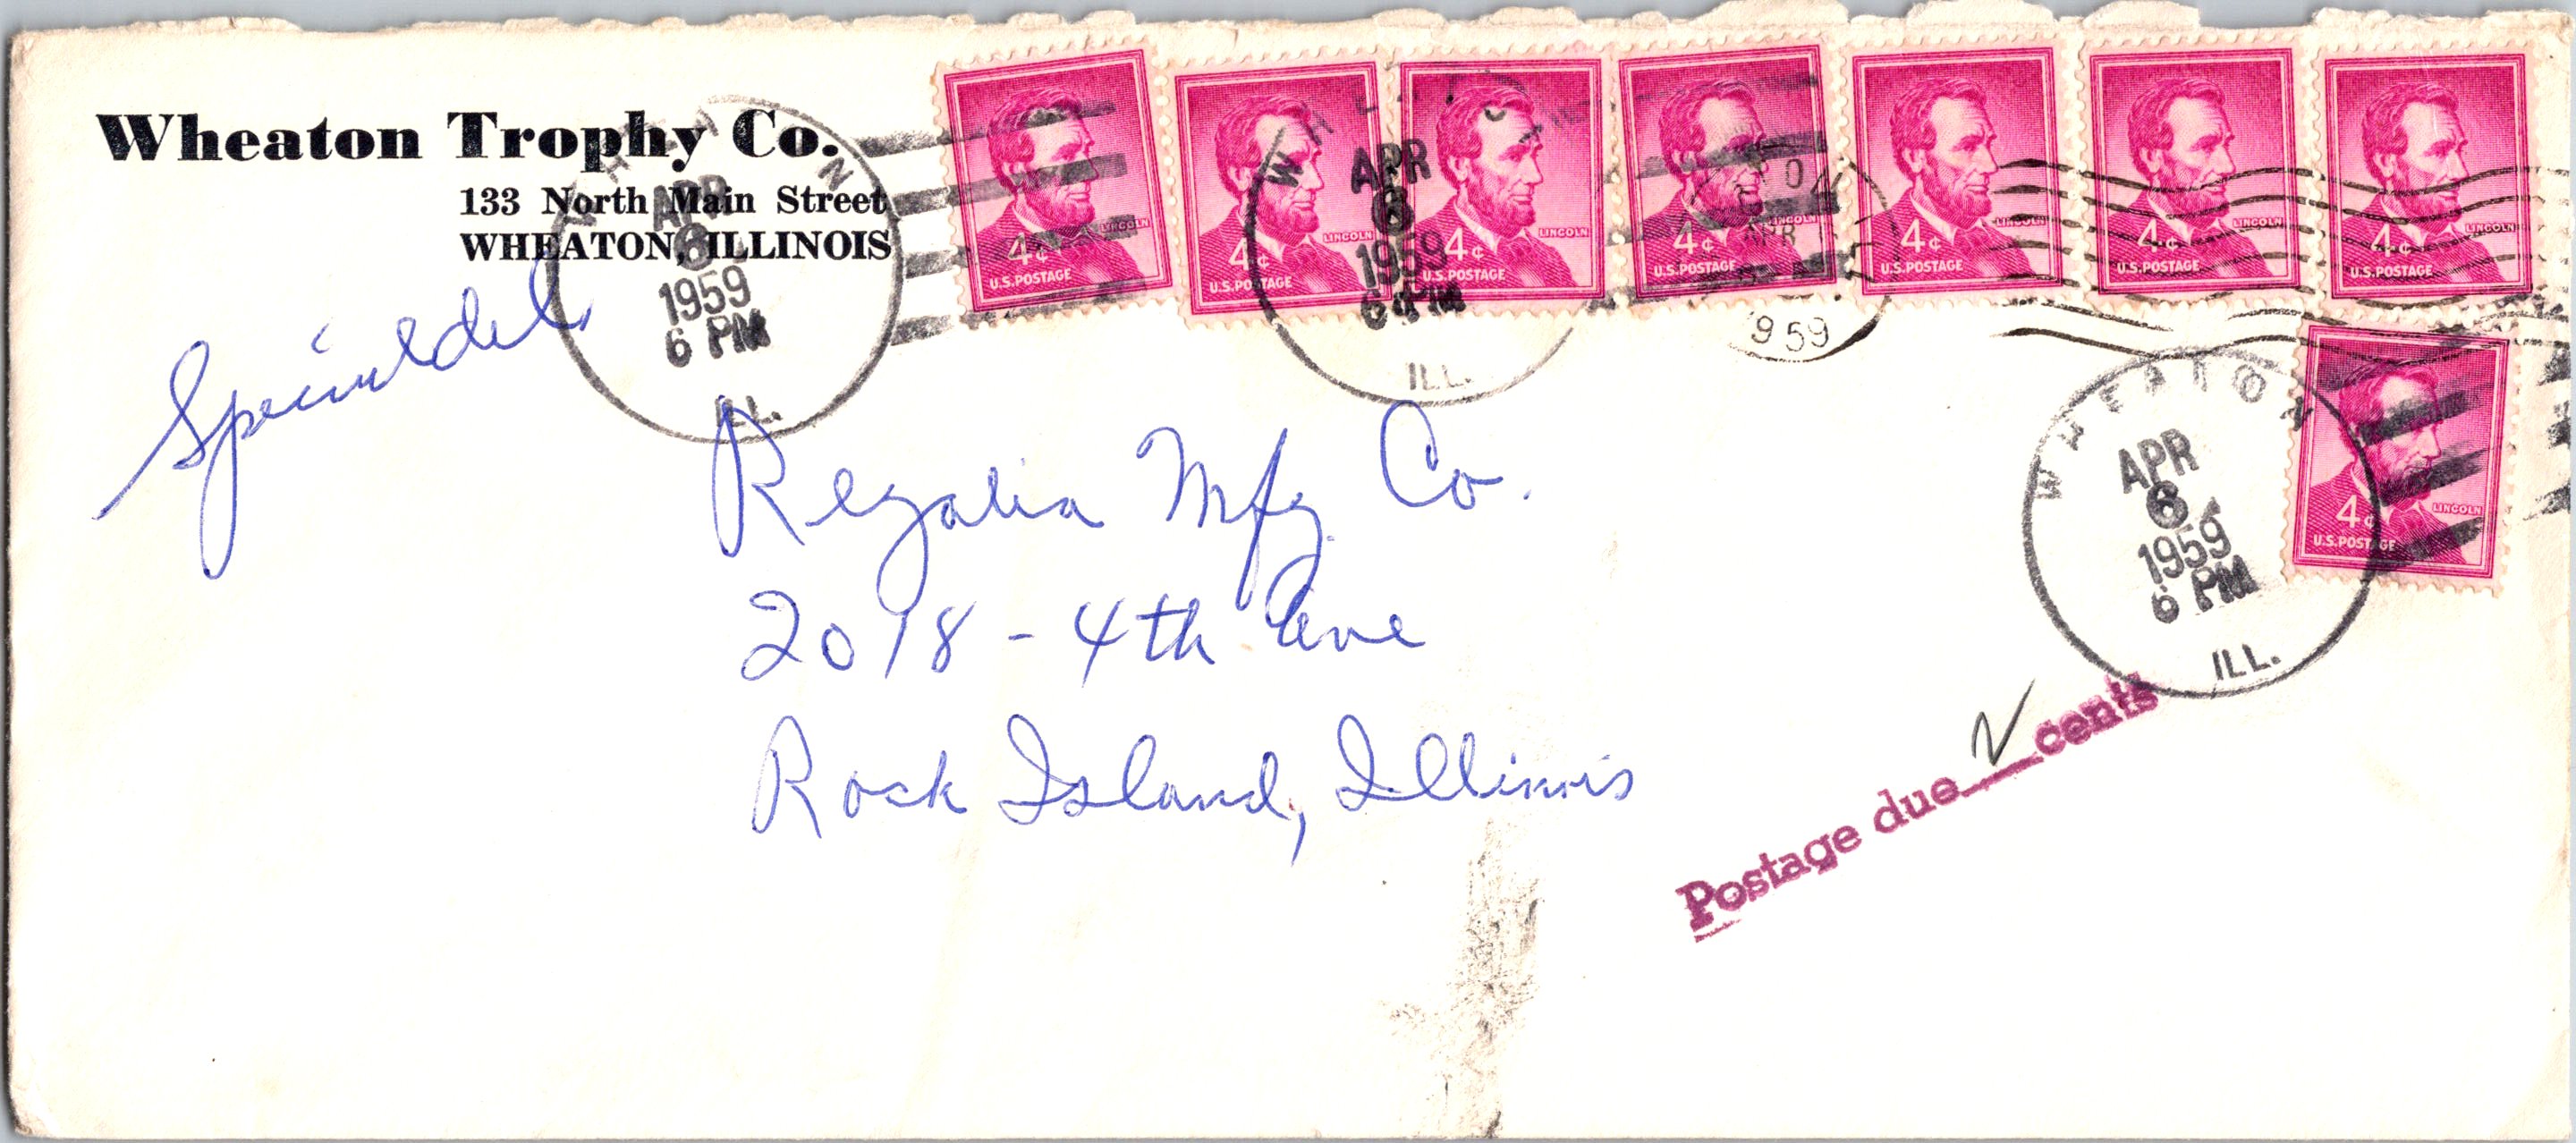 Wheaton Trophy Co.
133 North Main Street
WHEATON, ILLINOIS
Special del.
WHEATON
APR
6
1959
6 PM
ILL.
4¢
LINCOLN
U.S. POSTAGE
4¢
LINCOLN
U.S. POSTAGE
WHEATON
APR
6
1959
6 PM
ILL.
4¢
LINCOLN
U.S. POSTAGE
4¢
LINCOLN
U.S. POSTAGE
APR
1959
4¢
LINCOLN
U.S. POSTAGE
4¢
LINCOLN
U.S. POSTAGE
4¢
LINCOLN
U.S. POSTAGE
4¢
LINCOLN
U.S. POSTAGE
WHEATON
APR
6
1959
6 PM
ILL.
Regalia Mfg. Co.
2018 - 4th Ave
Rock Island, Illinois
Postage due cents